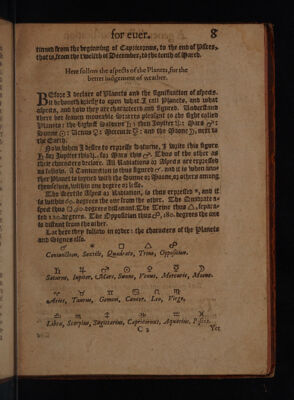 for euer. 8
turned from the beginning of Capricornus, to the end of Pisces,
that is, from the twelfth of December, to the tenth of March.
Here follow the aspects of the Planets, for the
better iudgement of weather.
BEfore I declare of Planets and the signification of aspects,
it behoueth briefly to open what I call Planets, and what
aspects, and how they are charactered and figured. Vnderstand
there are seauen moueable sterres pleasant to the sight called
Planets: the highest Saturne ♄: then Iupiter ♃: Mars ♂:
Sunne ☉: Venus ♀: Mercurie ☿: and the Moone ☽, next to
the Earth.
Now when I desire to expresse Saturne, I write this figure
♄ for Iupiter this ♃, for Mars this ♂. Thus of the other as
their characters declare. All Radiations or Aspects are expressed
as follow. A Coniunction is thus figured ☌, and it is when another
Planet is ioyned with the Sunne or Moone, or others among
themselues, within one degree or lesse.
The Sextile Aspect or Radiation, is thus expressed ⚹, and is
so within 60. degrees the one from the other. The Quadrate aspect
thus □, 90. degrees distant. The Trine thus △, separated
120. degrees. The Opposition thus ☍, 180. degrees the one
is distant from the other.
Lo here they follow in order: the characters of the Planets
and Signes also.
☌ ⚹ □ △ ☍
Coniunction, Sextile, Quadrate, Trine, Opposition.
♄ ♃ ♂ ☉ ♀ ☿ ☽
Saturne, Iupiter, Mars, Sunne, Venus, Mercurie, Moone.
♈ ♉ ♊ ♋ ♌ ♍
Aries, Taurus, Gemini, Cancer, Leo, Virgo,
♎ ♏ ♐ ♑ ♒ ♓
Libra, Scorpius, Sagittarius, Capricornus, Aquarius, Pisces.
C 2 Yet